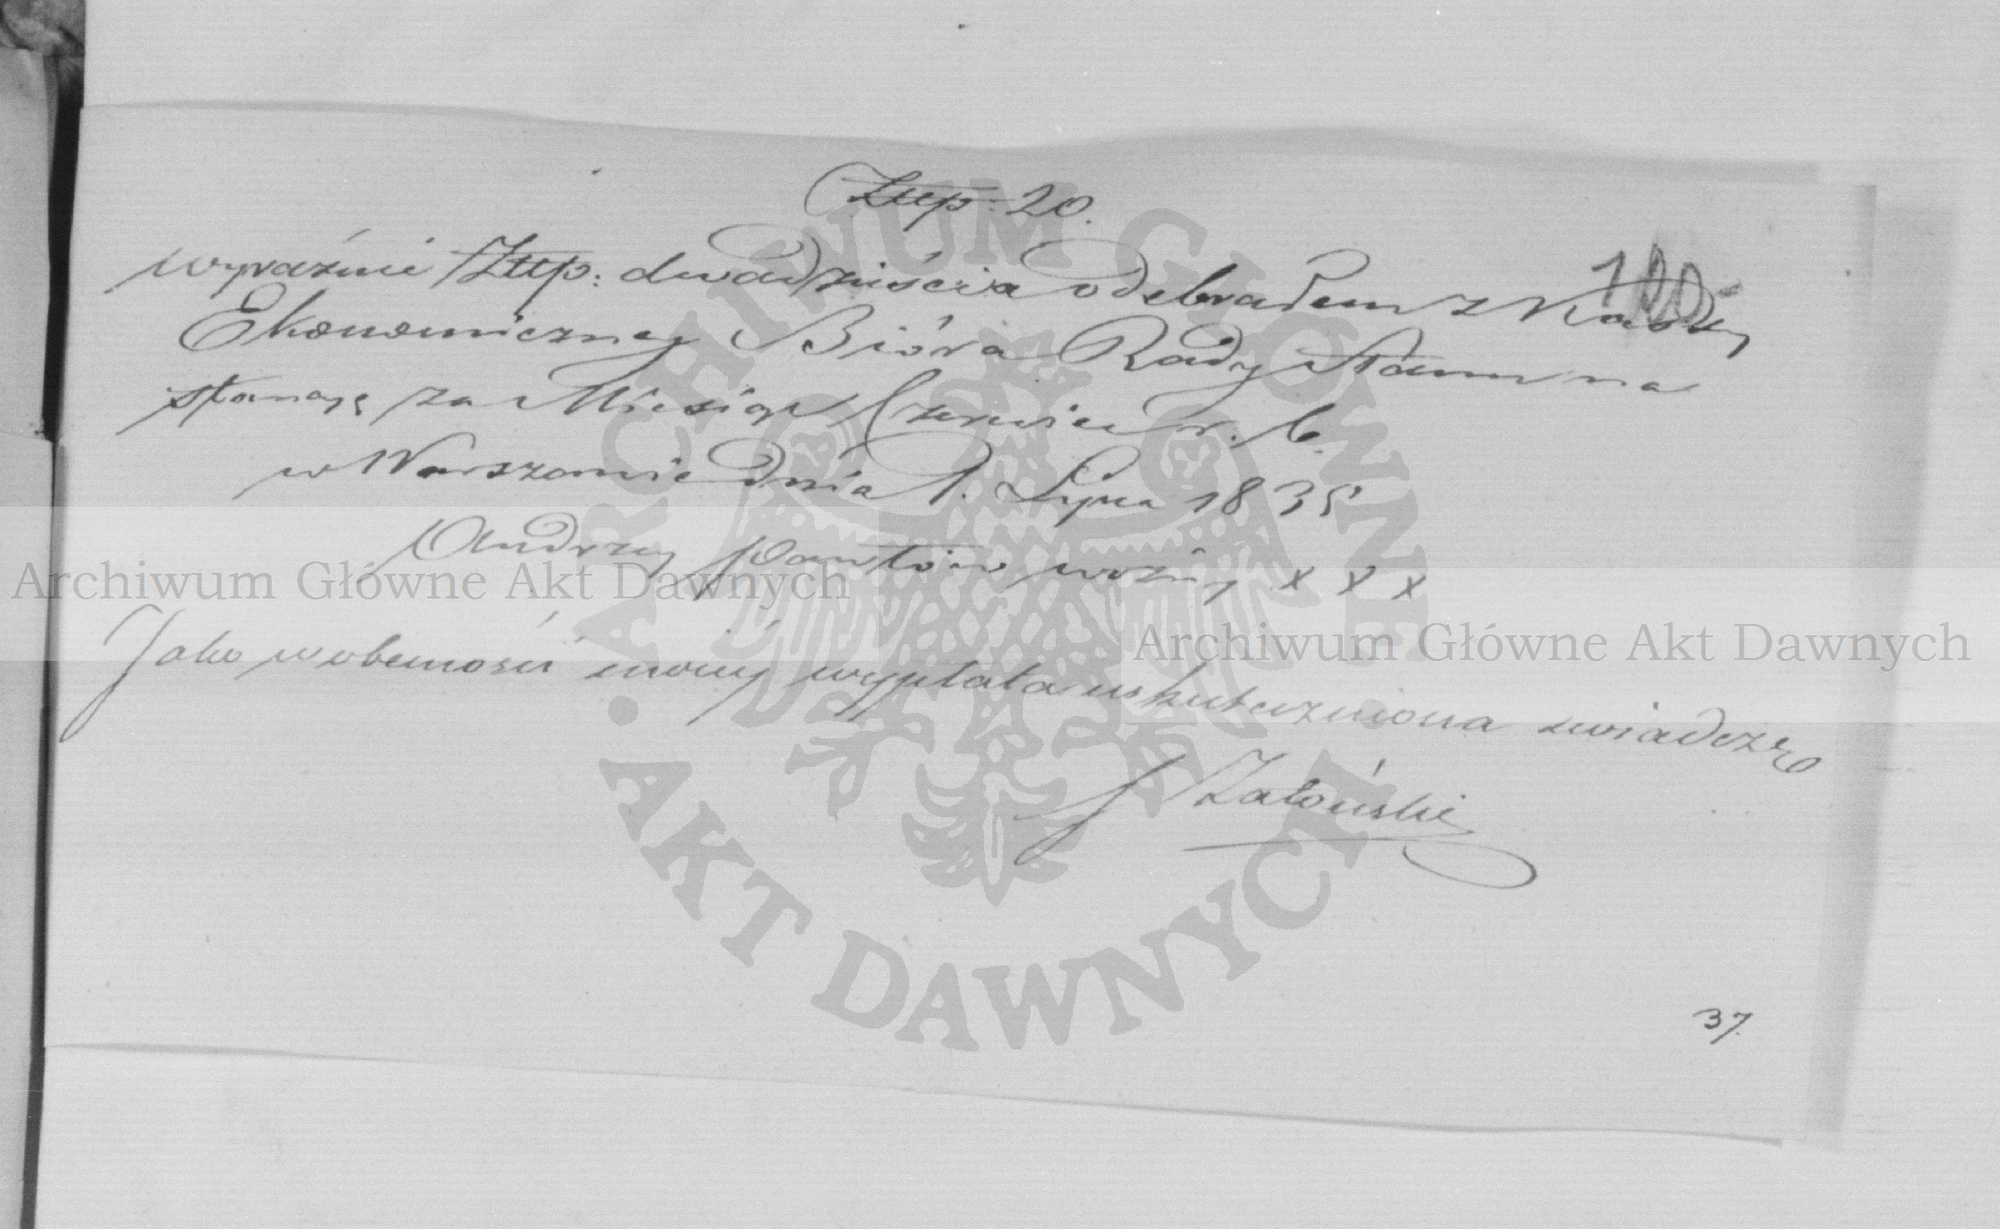 Złtp: 20.
wyraźnie Złtp: dwadzieścia odebrałem z Kassy
Ekonomiczney Bióra Rady Stanu na
stancyę za Miesiąc Czerwiec r. b.
w Warszawie dnia 1. Lipca 1835
Andrzey Pawłów woźny x x x
Jako w obecności moiey wypłata uskuteczniona zwiadczę
J Załóuski
120
37.
Archiwum Główne Akt Dawnych
Archiwum Główne Akt Dawnych
ARCHIWUM GŁÓWNE · AKT DAWNYCH ·